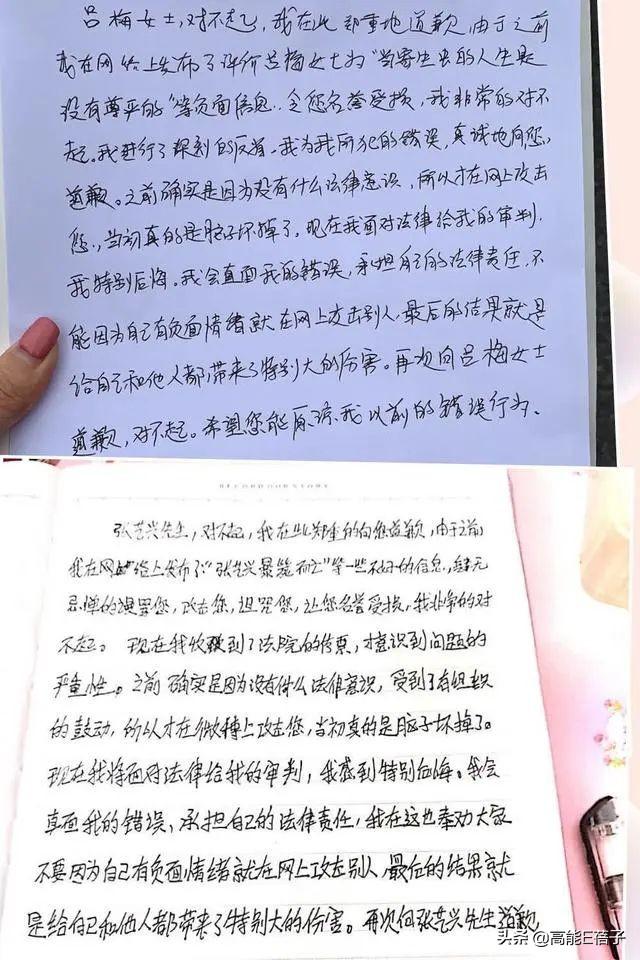 吕梅女士,对不起,我在此郑重地道歉,由于之前
我在网络上发布了评价吕梅女士为"当寄生虫的人生是
没有尊严的"等负面信息..令您名誉受损,我非常的对不
起。我进行了深刻的反省.我为我所犯的错误,真诚地向您,
道歉。之前确实是因为没有什么法律意识,所以才在网上攻击
您.,当初真的是脑子坏掉了,现在我面对法律给我的审判.
我特别后悔。我会直面我的错误,承担自己的法律责任.不
能因为自己有负面情绪就在网上攻击别人.最后的结果就是
给自己和他人都带来了特别大的伤害。再次向吕梅女士
道歉,对不起。希望您能原谅我以前的错误行为.
RECORD OUR STORY
张艺兴先生,对不起,我在此郑重的向您道歉,由于之前
我在网络上发布了"张艺兴暴毙而亡"等一些不好的信息,肆无
忌惮的谩骂您,攻击您,诅咒您,让您名誉受损,我非常的对
不起。现在我收到了法院的传票,才意识到问题的
严重性。之前确实是因为没有什么法律意识,受到了有组织
的鼓动,所以才在微博上攻击您,当初真的是脑子坏掉了。
现在我将面对法律给我的审判,我感到特别后悔。我会
直面我的错误、承担自己的法律责任,我在这也奉劝大家
不要因为自己有负面情绪就在网上攻击别人,最后的结果就
是给自己和他人都带来了特别大的伤害。再次向张艺兴先生道歉
头条 @高能E蓓子